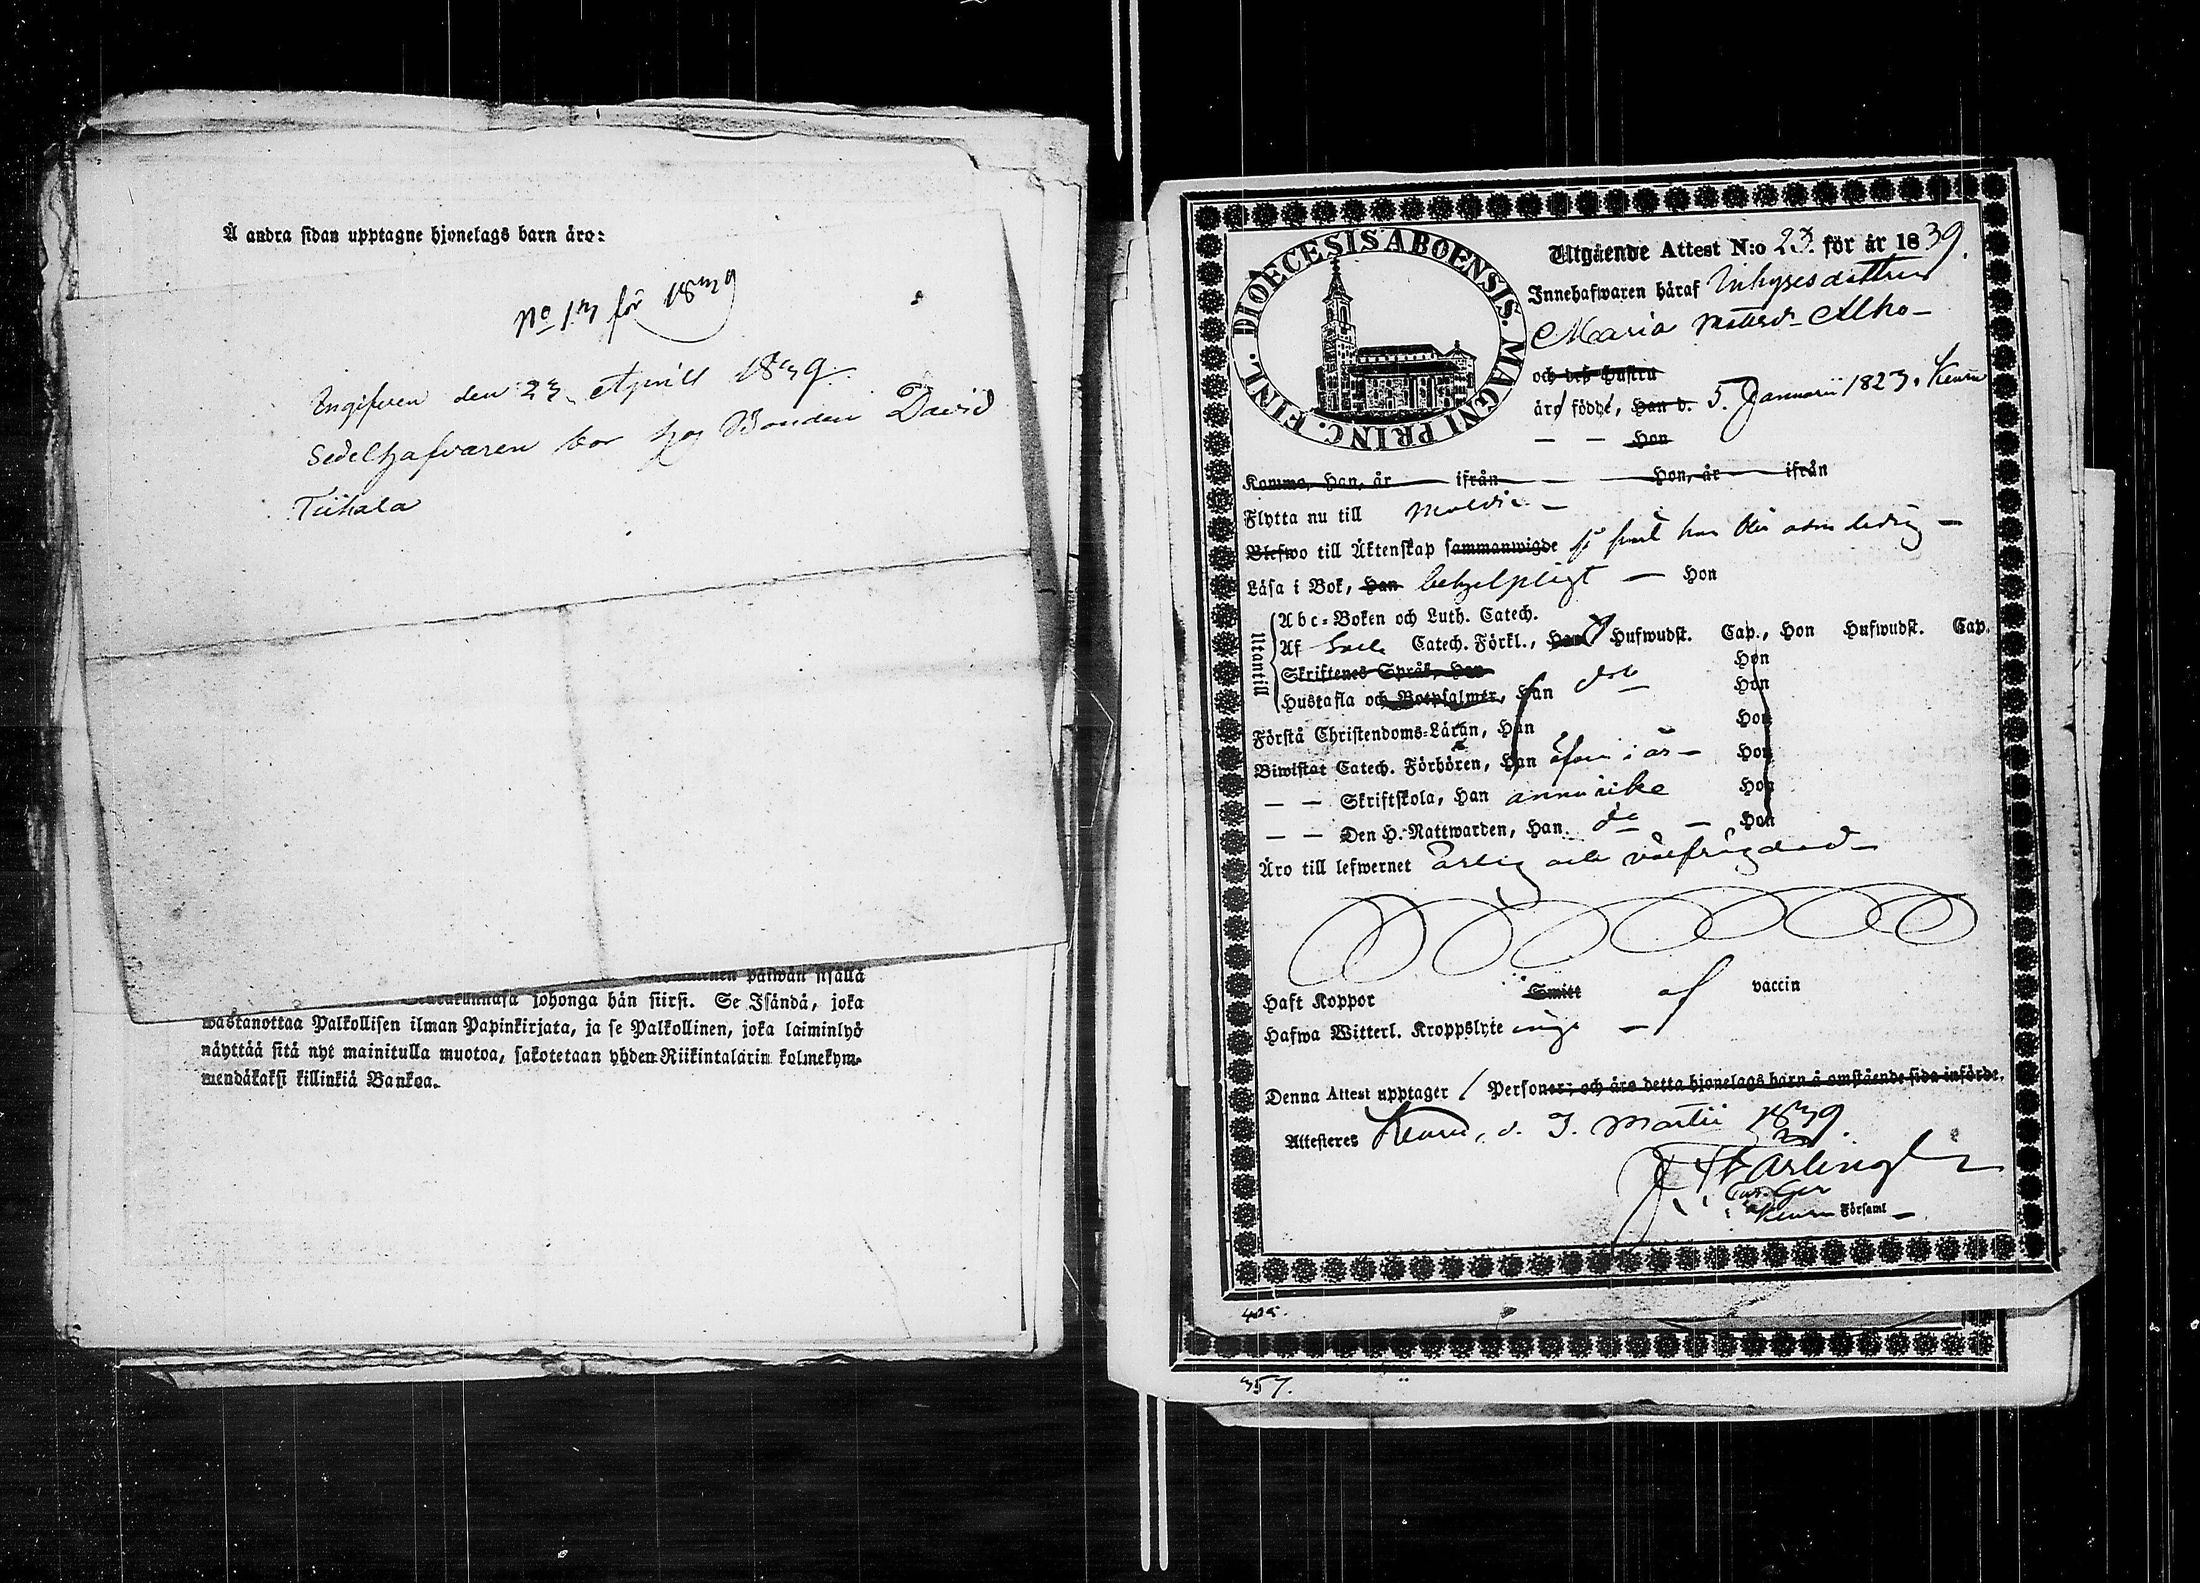 Å andra sidan upptagne hjonelags barn äro:
No 13 för 1839
Ingifven den 23 April 1839.
Sedelhafvaren bor hos Bonden David
Tiihala
påiwän sisällä
johonga hän siirsi. Se Isändä, joka
wastanottaa Palkollisen ilman Papinkirjata, ja se Palkollinen, joka laiminlyö
näyttää sitä nyt mainitulla muotoa, sakotetaan yhden Riikintalarin kolmekym-
mendäkaksi killinkiä Bankoa.
DIOECESIS ABOENSIS. MAGNI PRINC. FINL.
Utgående Attest N:o 23. för år 1839.
Innehafwaren häraf Inhyses dottren
Maria Mattsdr Alho
och deß Hustru
äro födde, Han d. 5. Januarii 1823. Keuru
— — Hon
Komne, Han, år ifrån Hon, år ifrån
Flytta nu till Moldia
Blefwo till Äktenskap sammanwigde
Läsa i Bok, Han behjelpligt — Hon
Utantill
Abc-Boken och Luth. Catech.
Af Catech. Förkl., Han Hufwudst. Cap., Hon Hufwudst. Cap.
Skriftenes Språk, Han Hon
Hustafla och Botpsalmer, Han do Hon
Förstå Christendoms-Läran, Han Hon
Biwistat Catech. Förhören, Han äfven i år — Hon
— — Skriftskola, Han ännu icke Hon
— — Den H. Nattwarden, Han do — Hon
Äro till lefwernet ärlig och välfrägdad —
Haft Koppor Smitt af vaccin
Hafwa Witterl. Kroppslyte inga —
Denna Attest upptager 1 Personer; och äro detta hjonelags barn å omstående sida införde.
Attesteres Keuru, d. 3. Martii 1839.
Keuru Församl
405.
357.